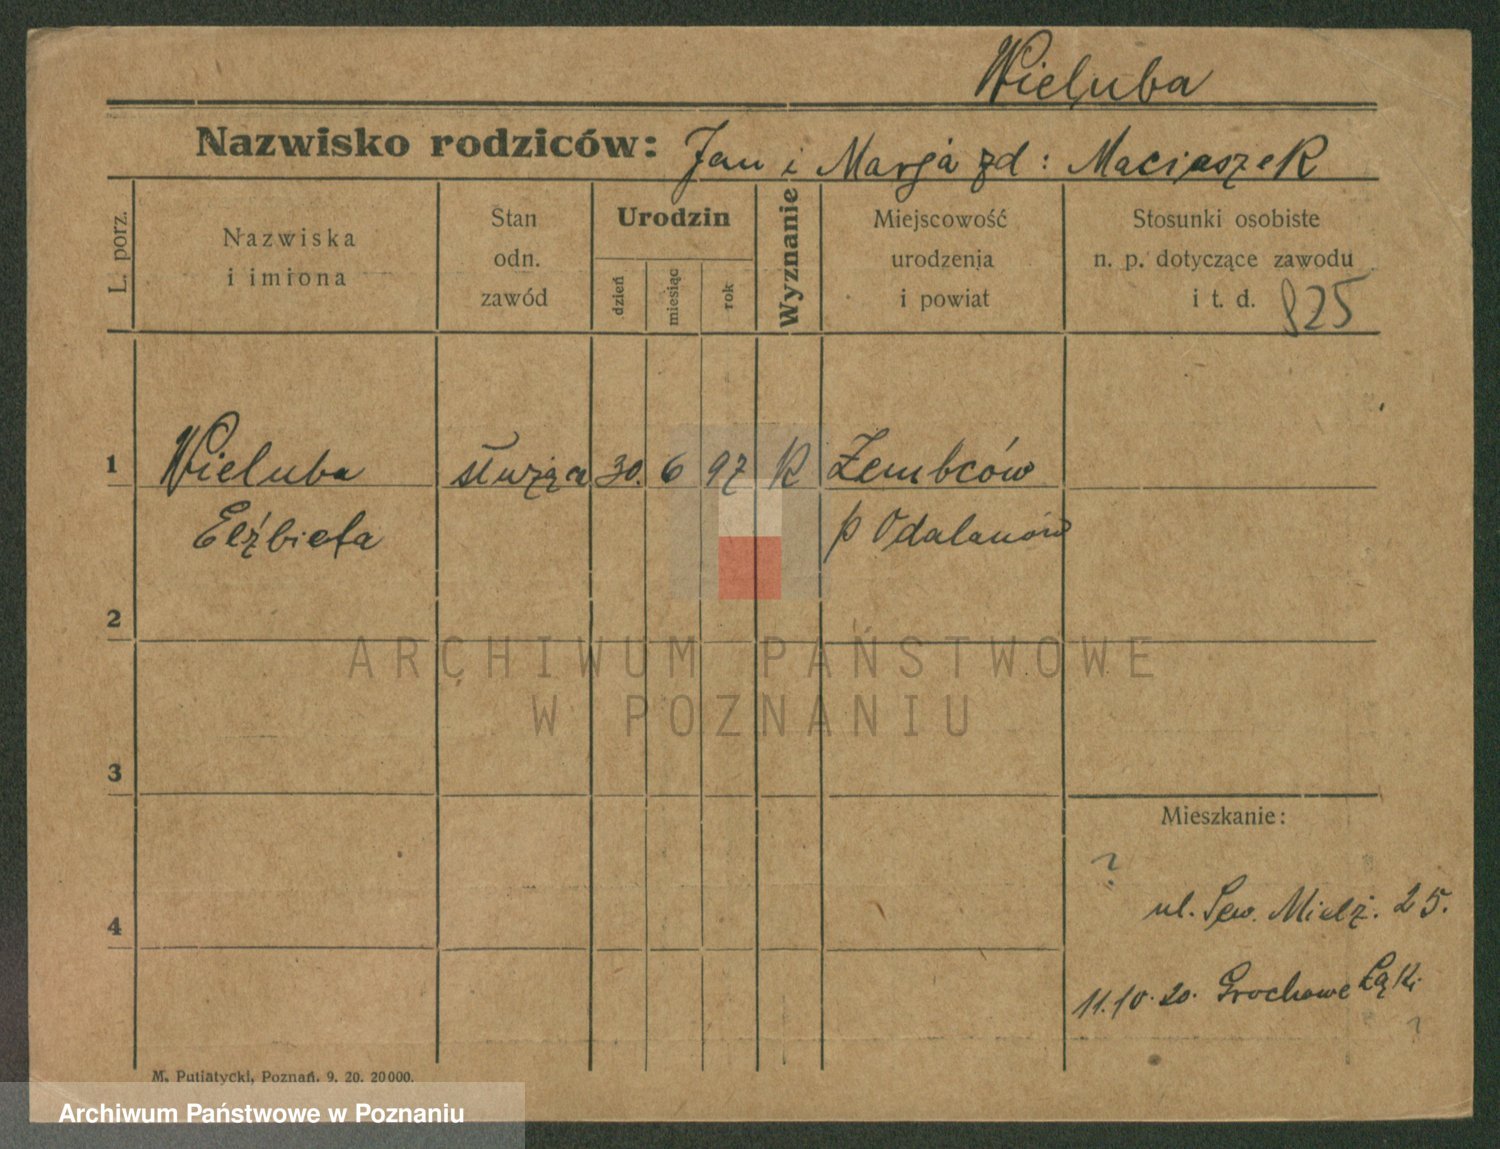 Wieluba
Nazwisko rodziców: Jan i Marja zd: Maciaszek
L. porz.
Nazwiska
i imiona
Stan
odn.
zawód
Urodzin
dzień
miesiąc
rok
Wyznanie
Miejscowość
urodzenia
i powiat
Stosunki osobiste
n. p. dotyczące zawodu
i t. d. 825
1 Wieluba służąca 30. 6 97 K Zembców
Elżbieta p Odalanów
2
ARCHIWUM PAŃSTWOWE
W POZNANIU
3
Mieszkanie:
?
4 ul. Sew. Mielż. 25.
11.10.20. Grochowe Łąki
?
M. Putiatycki, Poznań. 9. 20. 20000.
Archiwum Państwowe w Poznaniu